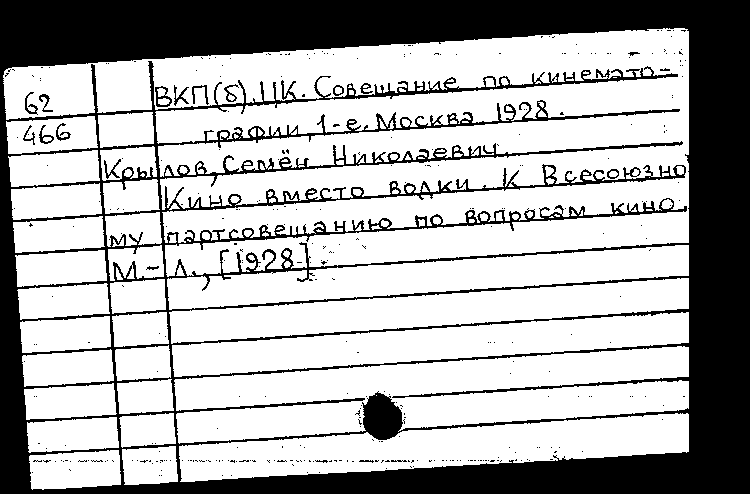 62 ВКП(б). ЦК. Совещание по кинемато-
466 графии, 1-е. Москва. 1928.
Крылов, Семён Николаевич.
Кино вместо водки. К Всесоюзно
му партсовещанию по вопросам кино.
М.-Л., [1928].